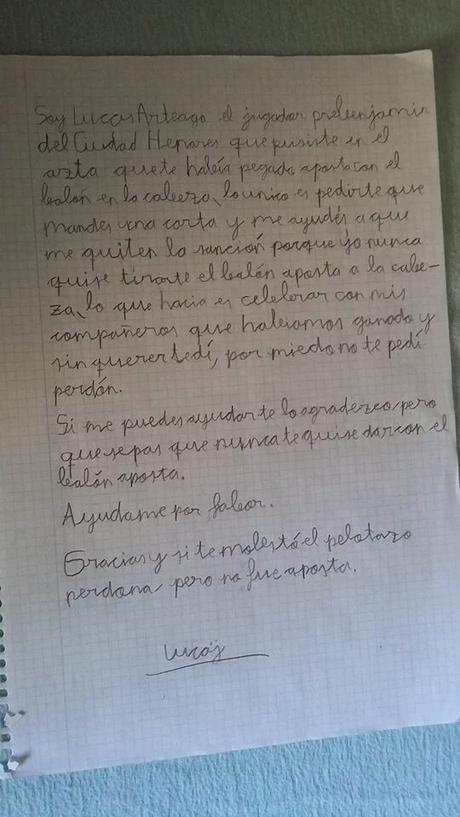 Soy Lucas Arteaga el jugador prebenjamin
del Ciudad Henares que pusiste en el
azta que te había pegado aposta con el
balón en la cabeza, lo unico es pedirte que
mandes una carta y me ayudes a que
me quiten la sanción porque yo nunca
quise tirarte el balón aposta a la cabe-
za, lo que hacia es celebrar con mis
compañeros que habiamos ganado y
sin querer te dí, por miedo no te pedí
perdón.
Si me puedes ayudar te lo agradezco, pero
que sepas que nunca te quise dar con el
balón aposta.
Ayudame por fabor.
Gracias y si te molestó el pelotazo
perdona, pero no fue aposta.
Lucas